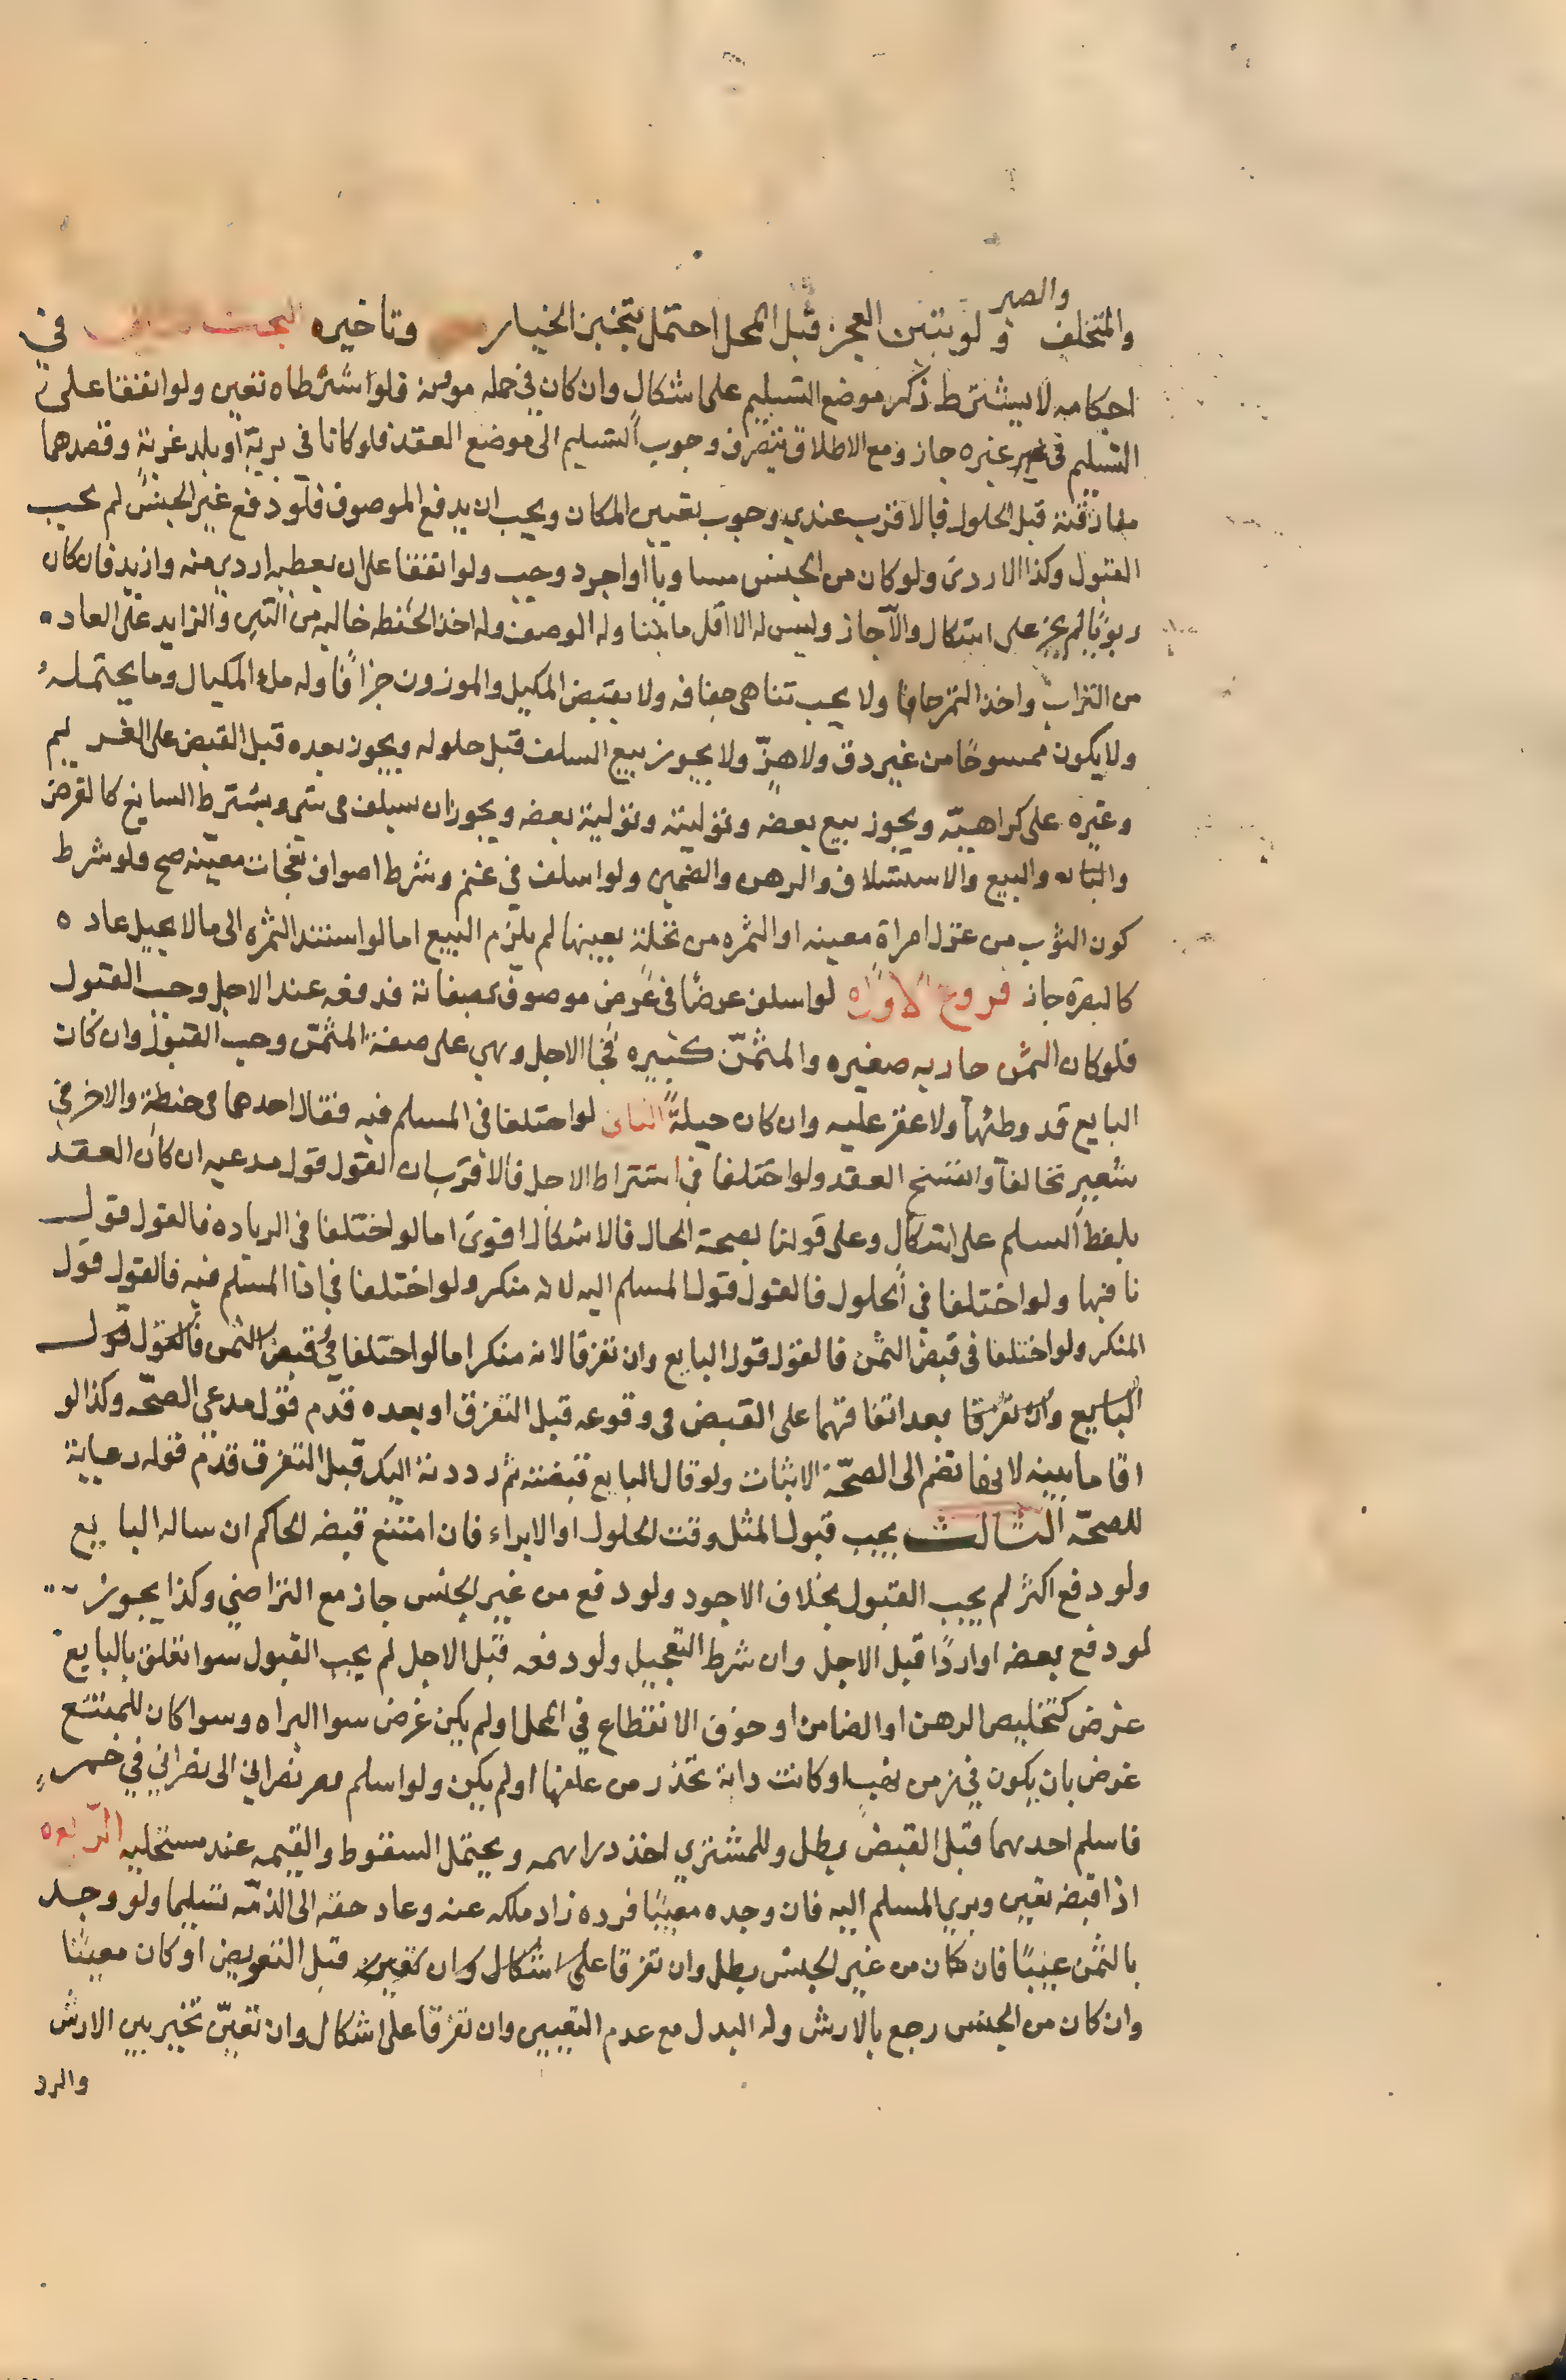 والصبر
والمتخلف ولو تبين العجز قبل المحل احتمل تنجيز الخيار وتاخيره البحث في
احكامه لا يشترط ذكر موضع التسليم على اشكال وان كان في حمله مؤنة فلو اشترطاه تعين ولو اتفقا على
التسليم في غير غيره جاز ومع الاطلاق ينصرف وجوب التسليم الى موضع العقد فلو كانا في برية او بلد غربة وقصدهما
مفارقته قبل الحلول فالاقرب عندي وجوب تعيين المكان ويجب ان يدفع الموصوف فلو دفع غير الجنس لم يجب
القبول وكذا الاردى ولو كان من الجنس مساويا او اجود وجب ولو اتفقا على ان يعطيه اردى منه وازيد فان كان
ربويا لم يجز على اشكال والا جاز وليس له الا اقل ما يتناوله الوصف وله اخذ الحنطه خاليه من التبن والزايد على العاده
من التراب واخذ التمر جافا ولا يجب تناهى جفافه ولا يقبض المكيل والموزون جزافا وله ملء المكيال وما يحتمله
ولا يكون ممسوحا من غير دق ولا هز ولا يجوز بيع السلف قبل حلوله ويجوز بعده قبل القبض على الغريم
وغيره على كراهية ويجوز بيع بعضه وتوليته وتولية بعضه ويجوز ان يسلف في شي ويشترط السايغ كالقرض
والبيع والاستسلاف والرهن والضمين ولو اسلف في غنم وشرط اصواف نعجات معينه صح ولو شرط
كون الثوب من غزل امراة معينه او الثمره من نخلة بعينها لم يلزم البيع اما لو استند الثمره الى ما لا يحيل عاده
كالبصرة جاز فروع الاول لو اسلف عرضا في عرض موصوف بصفاته فدفعه عند الاجل وجب القبول
فلو كان الثمن جاريه صغيره والمثمن كبيره فجا الاجل وهي على صفة المثمن وجب القبول وان كان
البايع قد وطئها ولا عقر عليه وان كان حيلة الثاني لو اختلفا في المسلم فيه فقال احدهما في حنطة والاخر في
شعير تحالفا وانفسخ العقد ولو اختلفا في اشتراط الاجل فالاقرب ان القول قول مدعيه ان كان العقد
بلفظ السلم على اشكال وعلى قولنا بصحة الحال فالاشكال اقوى اما لو اختلفا في الزياده فالقول قول
نافيها ولو اختلفا في الحلول فالقول قول المسلم اليه لانه منكر ولو اختلفا في اذا المسلم فيه فالقول قول
المنكر ولو اختلفا في قبض الثمن فالقول قول البايع وان تفرقا لانه منكر اما لو اختلفا في قبض الثمن فالقول قول
البايع وان تفرقا بعد اتفاقهما على القبض في وقوعه قبل التفرق او بعده قدم قول مدعي الصحة وكذا لو
اقاما بينة لانها تضم الى الصحة الاثبات ولو قال البايع قبضته ثم رددته اليك قبل التفرق قدم قوله رعاية
للصحة الثالث يجب قبول المثل وقت الحلول او الابراء فان امتنع قبضه الحاكم ان ساله البايع
ولو دفع اكثر لم يجب القبول بخلاف الاجود ولو دفع من غير الجنس جاز مع التراضي وكذا يجوز
لو دفع بعضه او اردا قبل الاجل وان شرط التعجيل ولو دفعه قبل الاجل لم يجب القبول سوا تعلق بالبايع
غرض كتخليص الرهن او الضامن او خوف الانقطاع في المحل او لم يكن غرض سوا البراه وسوا كان للممتنع
غرض بان يكون في زمن نهب او كانت دابة تحذر من علفها او لم يكن ولو اسلم نصراني الى نصراني في خمر
فاسلم احدهما قبل القبض بطل وللمشتري اخذ دراهمه ويحتمل السقوط والقيمه عند مستحليه الرابعه
اذا قبضه تعين وبري المسلم اليه فان وجده معيبا فرده زاد ملكه عنه وعاد حقه الى الذمه سليما ولو وجد
بالثمن عيبا فان كان من غير الجنس بطل وان تفرقا على اشكال وان تعين قبل التعويض او كان معينا
وان كان من الجنس رجع بالارش وله البدل مع عدم التعيين وان تفرقا على اشكال وان تعين تخير بين الارش
والرد